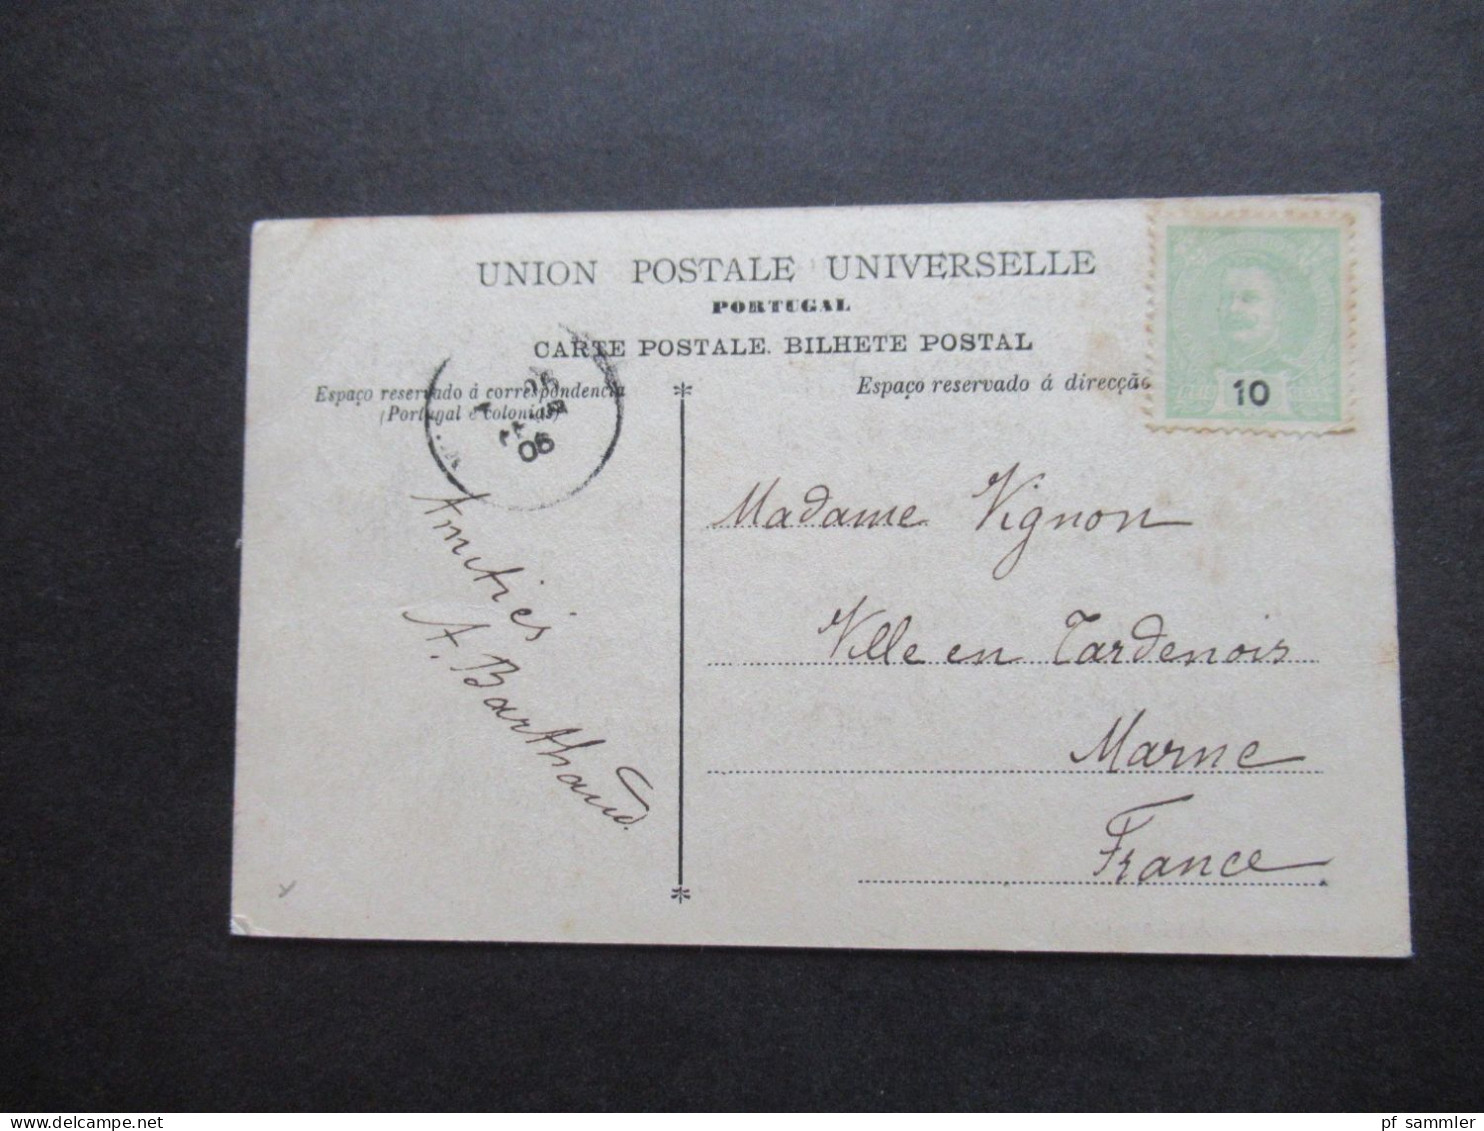 UNION POSTALE UNIVERSELLE
PORTUGAL
CARTE POSTALE. BILHETE POSTAL
Espaço reservado á correspondencia
(Portugal e colonias)
Espaço reservado á direcção
10
06
Amitiés
A. Barthaud.
Madame Vignon
Ville en Tardenois
Marne
France
pf_sammler